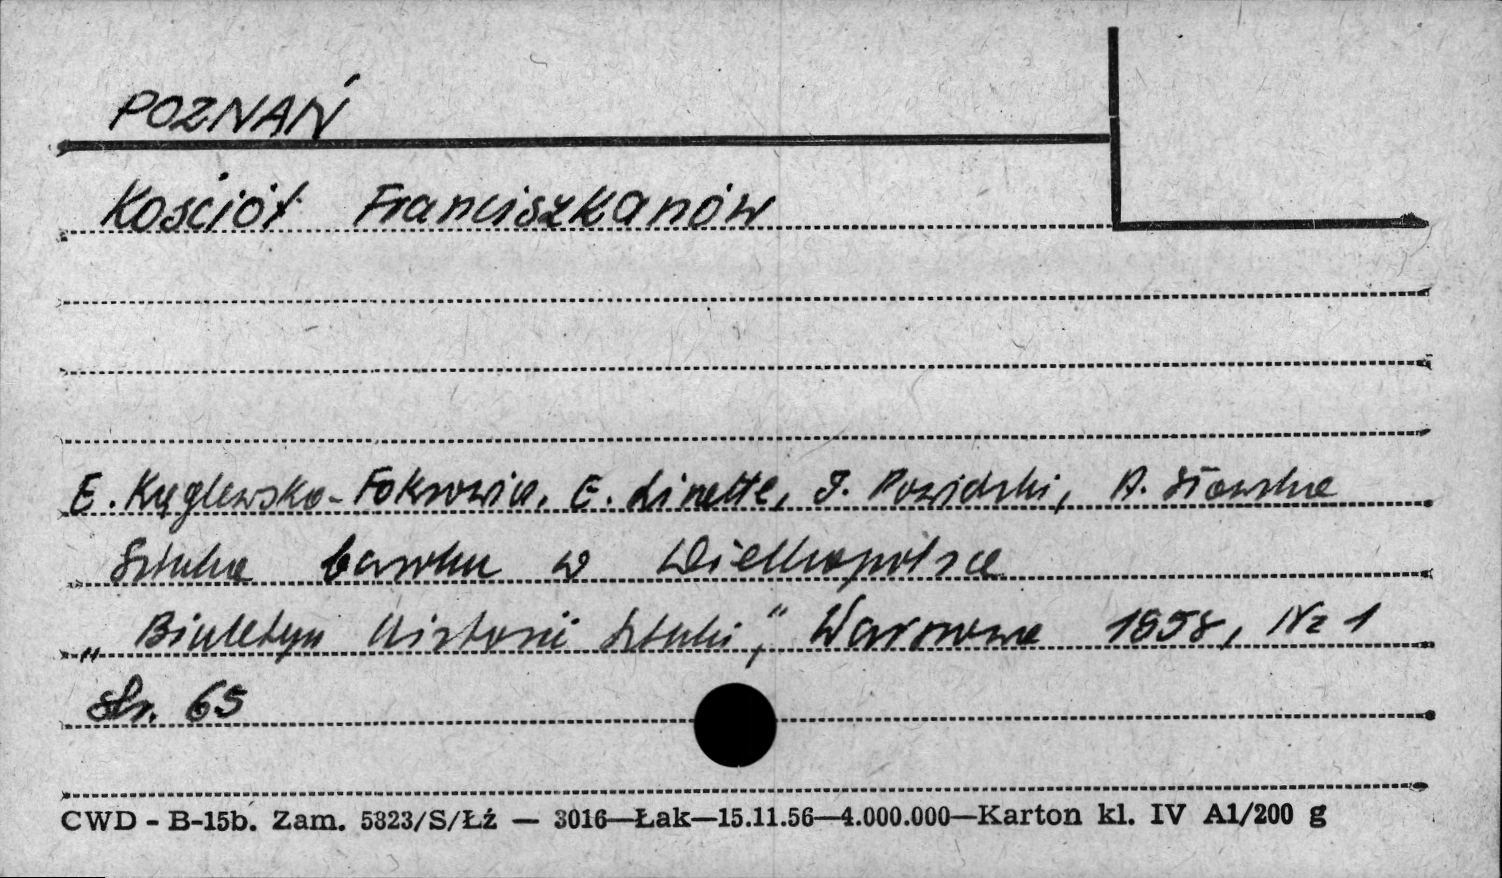 POZNAŃ
Kościół Franciszkanów
E. Kęglewska-Foksowicz, E. Linette, J. Powidzki, A. Sławska
Sztuka baroku w Wielkopolsce
„Biuletyn Historii Sztuki," Warszawa 1958, Nr 1
str. 65
CWD - B-15b. Zam. 5823/S/Łź — 3016—Łak—15.11.56—4.000.000—Karton kl. IV A1/200 g